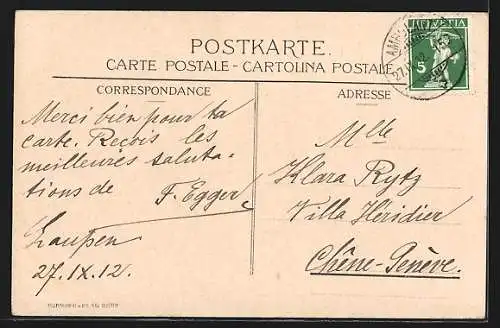 POSTKARTE.
CARTE POSTALE - CARTOLINA POSTALE
CORRESPONDANCE
Merci bien pour ta
carte. Reçois les
meilleures saluta-
tions de
F. Egger
Laupen
27. IX. 12.
ADRESSE
HELVETIA
5
Mlle
Klara Rytz
Villa Héridier
Chêne-Genève.